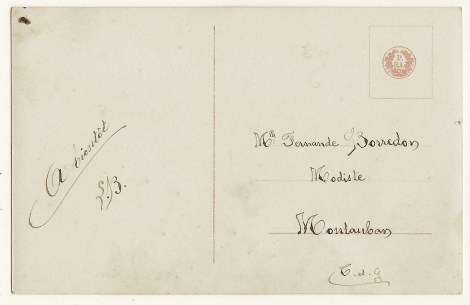 A bientôt
L.B.
Mlle Fernande Borredon
Modiste
Montauban
T. d. G